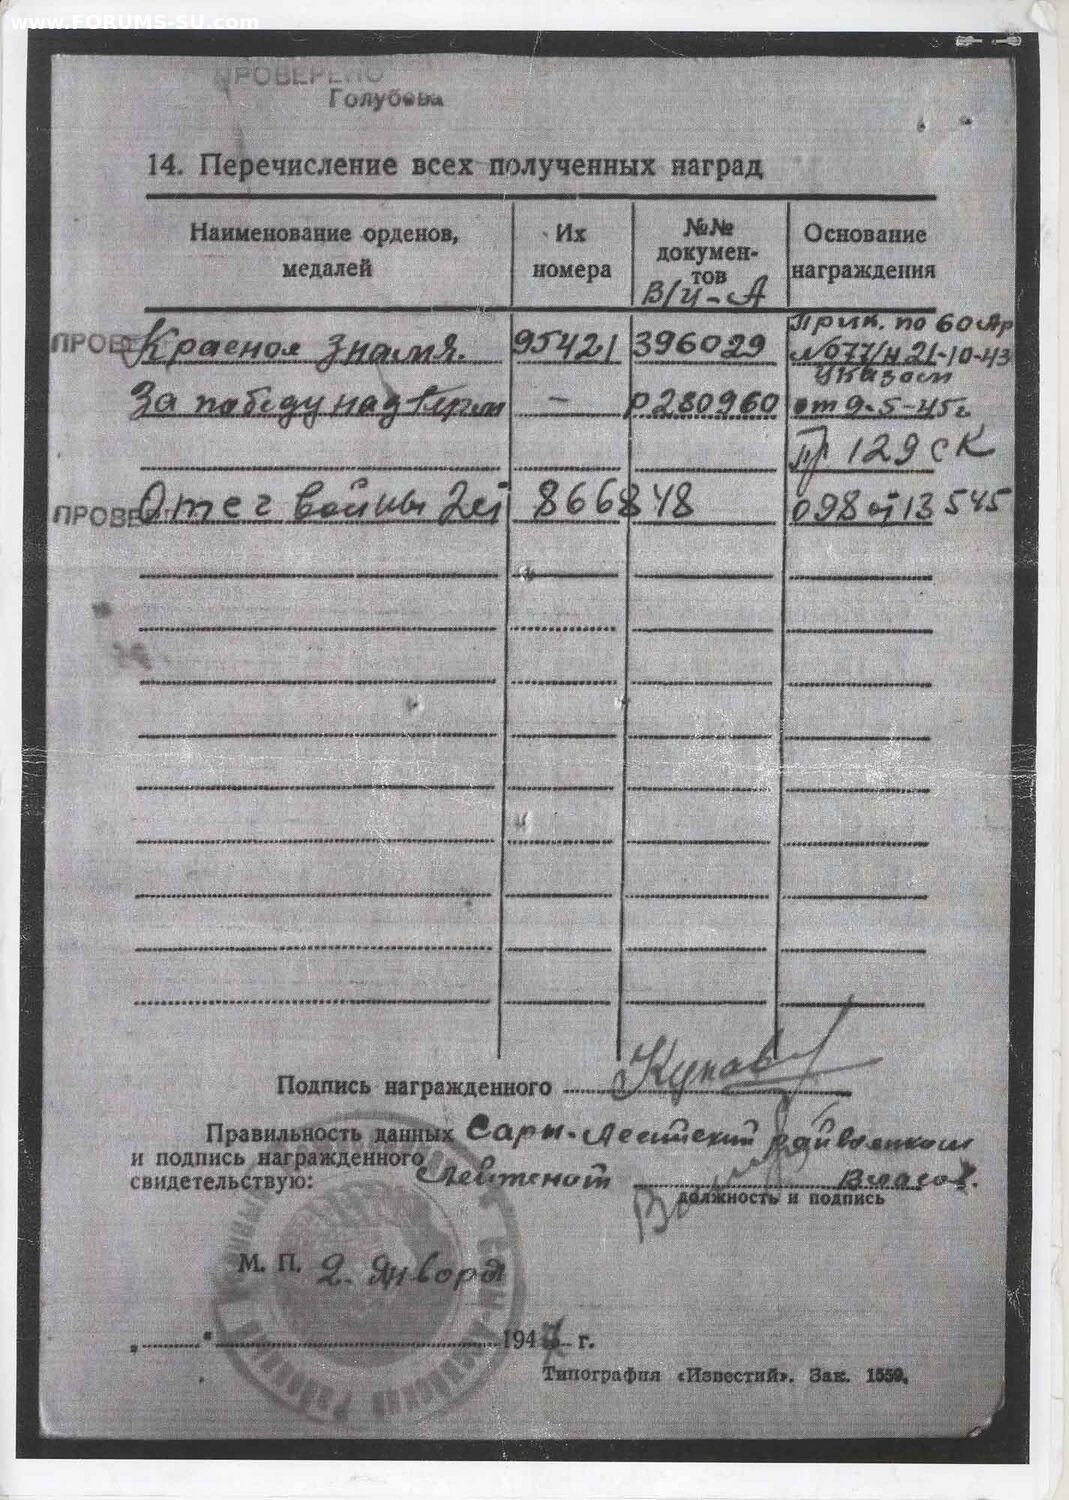 www.FORUMS-SU.com
ПРОВЕРЕНО
Голубева
14. Перечисление всех полученных наград
Наименование орденов, медалей
Их номера
№№ документов
В/Ч-А
Основание награждения
ПРОВЕ Красное знамя. 95421 396029 Прик. по 60 Ар №077/н 21-10-43
За победу над Герм — р280960 Указом от 9-5-45г
ПРОВЕ Отеч войны 2ей 866848 Пр 129 СК 098 от 13 5 45
Подпись награжденного Кунав
Правильность данных Сары-Ассийский райвоенком
и подпись награжденного
свидетельствую: Лейтенант Власов.
должность и подпись
М. П. 2. Января
1947 г.
Типография «Известий». Зак. 1559.